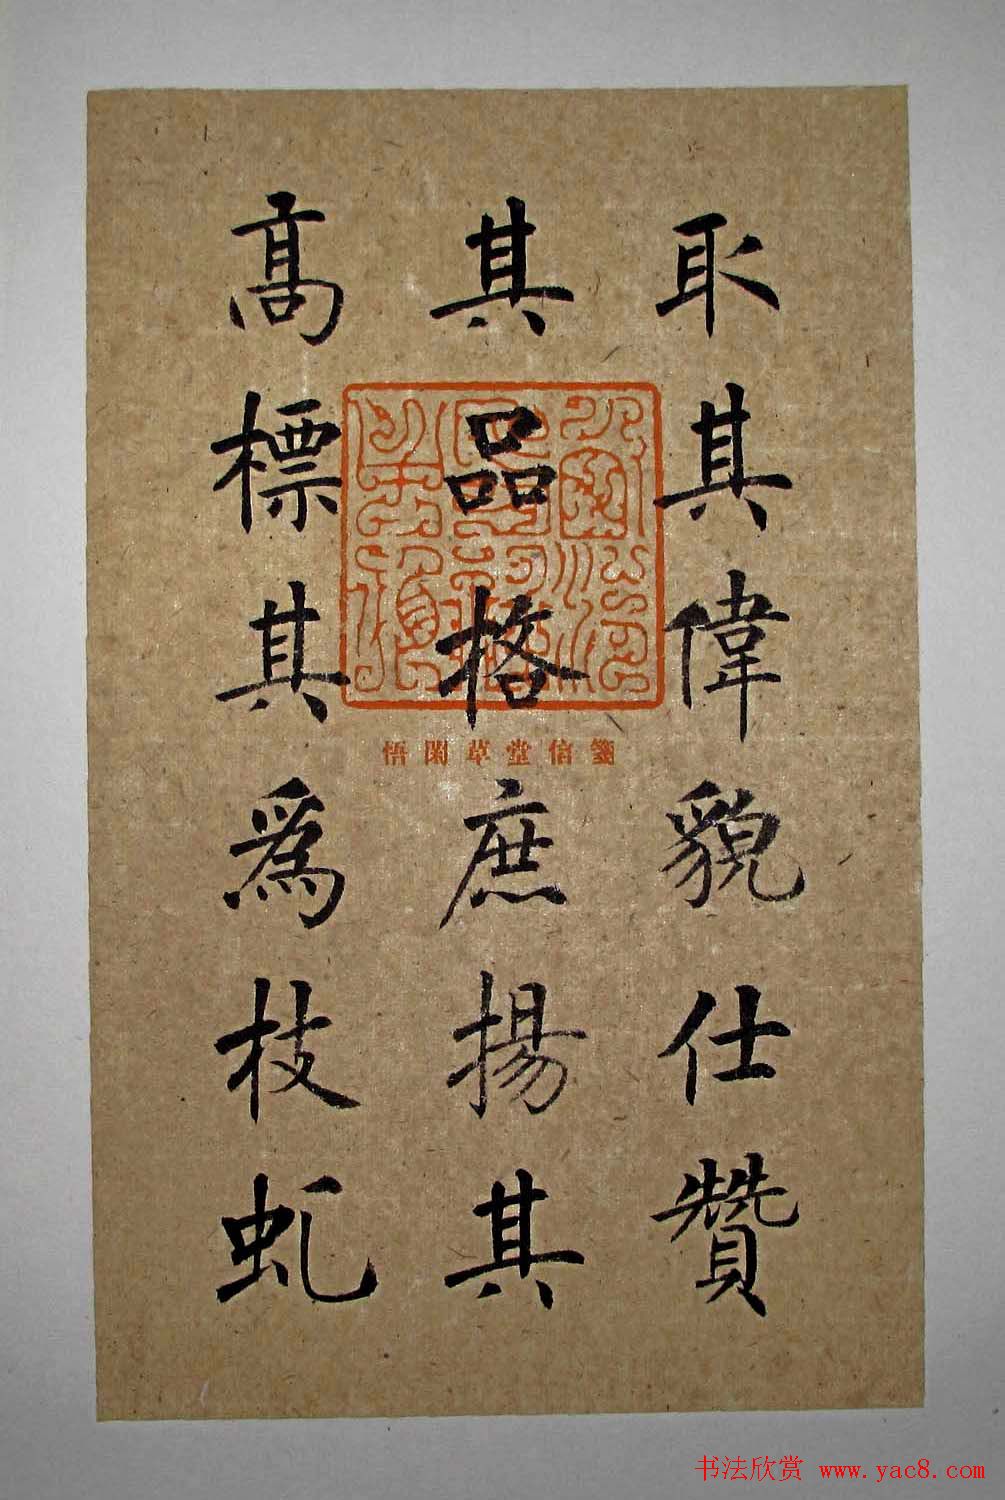 取其偉貌仕贊
其品格庶揚其
高標其為枝虬
悟閑草堂信箋
书法欣赏 www.yac8.com